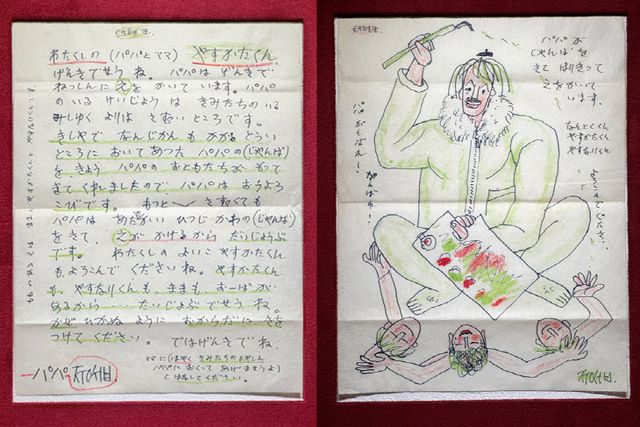 わたくしの (パパとママ) やすかたくん
げんきでせう ね。 パパは げんきで
ねっしんに えを かいて います。 パパ
の いる けいじょう は きみたち の いる
みしゆく よりは さむい ところです。
きしやで なんじかん も かかる とうい
ところに おいてあつた パパの(じゃんぱ)
を きよう パパの おともだちが もって
きて くれましたので パパは おうよろ
こびです。 もっと さむくても
パパは あたたかい ひつじ かわの(じゃんぱ)
をきて、 えが かけるから だいじょうぶ
です。 わたくしの よいこ やすかたくん
も よろこんで くださいね。 やすかたくん
も、 やすなりくんも、 ままも、 すーぱが
あるから…… だいじょぶでせう ね。
かぜ ひかぬ ように おからだに きを
つけて ください。 では げんきで ね。
ママに(はやく きみたちの しゃしん
パパに おくって あげませうよ)
と はなしてください。
パパ
パパが
じゃんぱを
きて はりきって
えをかいて
います。
なんとくくん
やすかたくん
やすなりくん
よろこんでください。
パパがんばれー!
がんばれ!